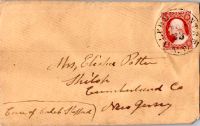 Mrs, Elisha Potter
Shiloh
Cumberland Co
New Jersey
Care of Caleb Sheppard